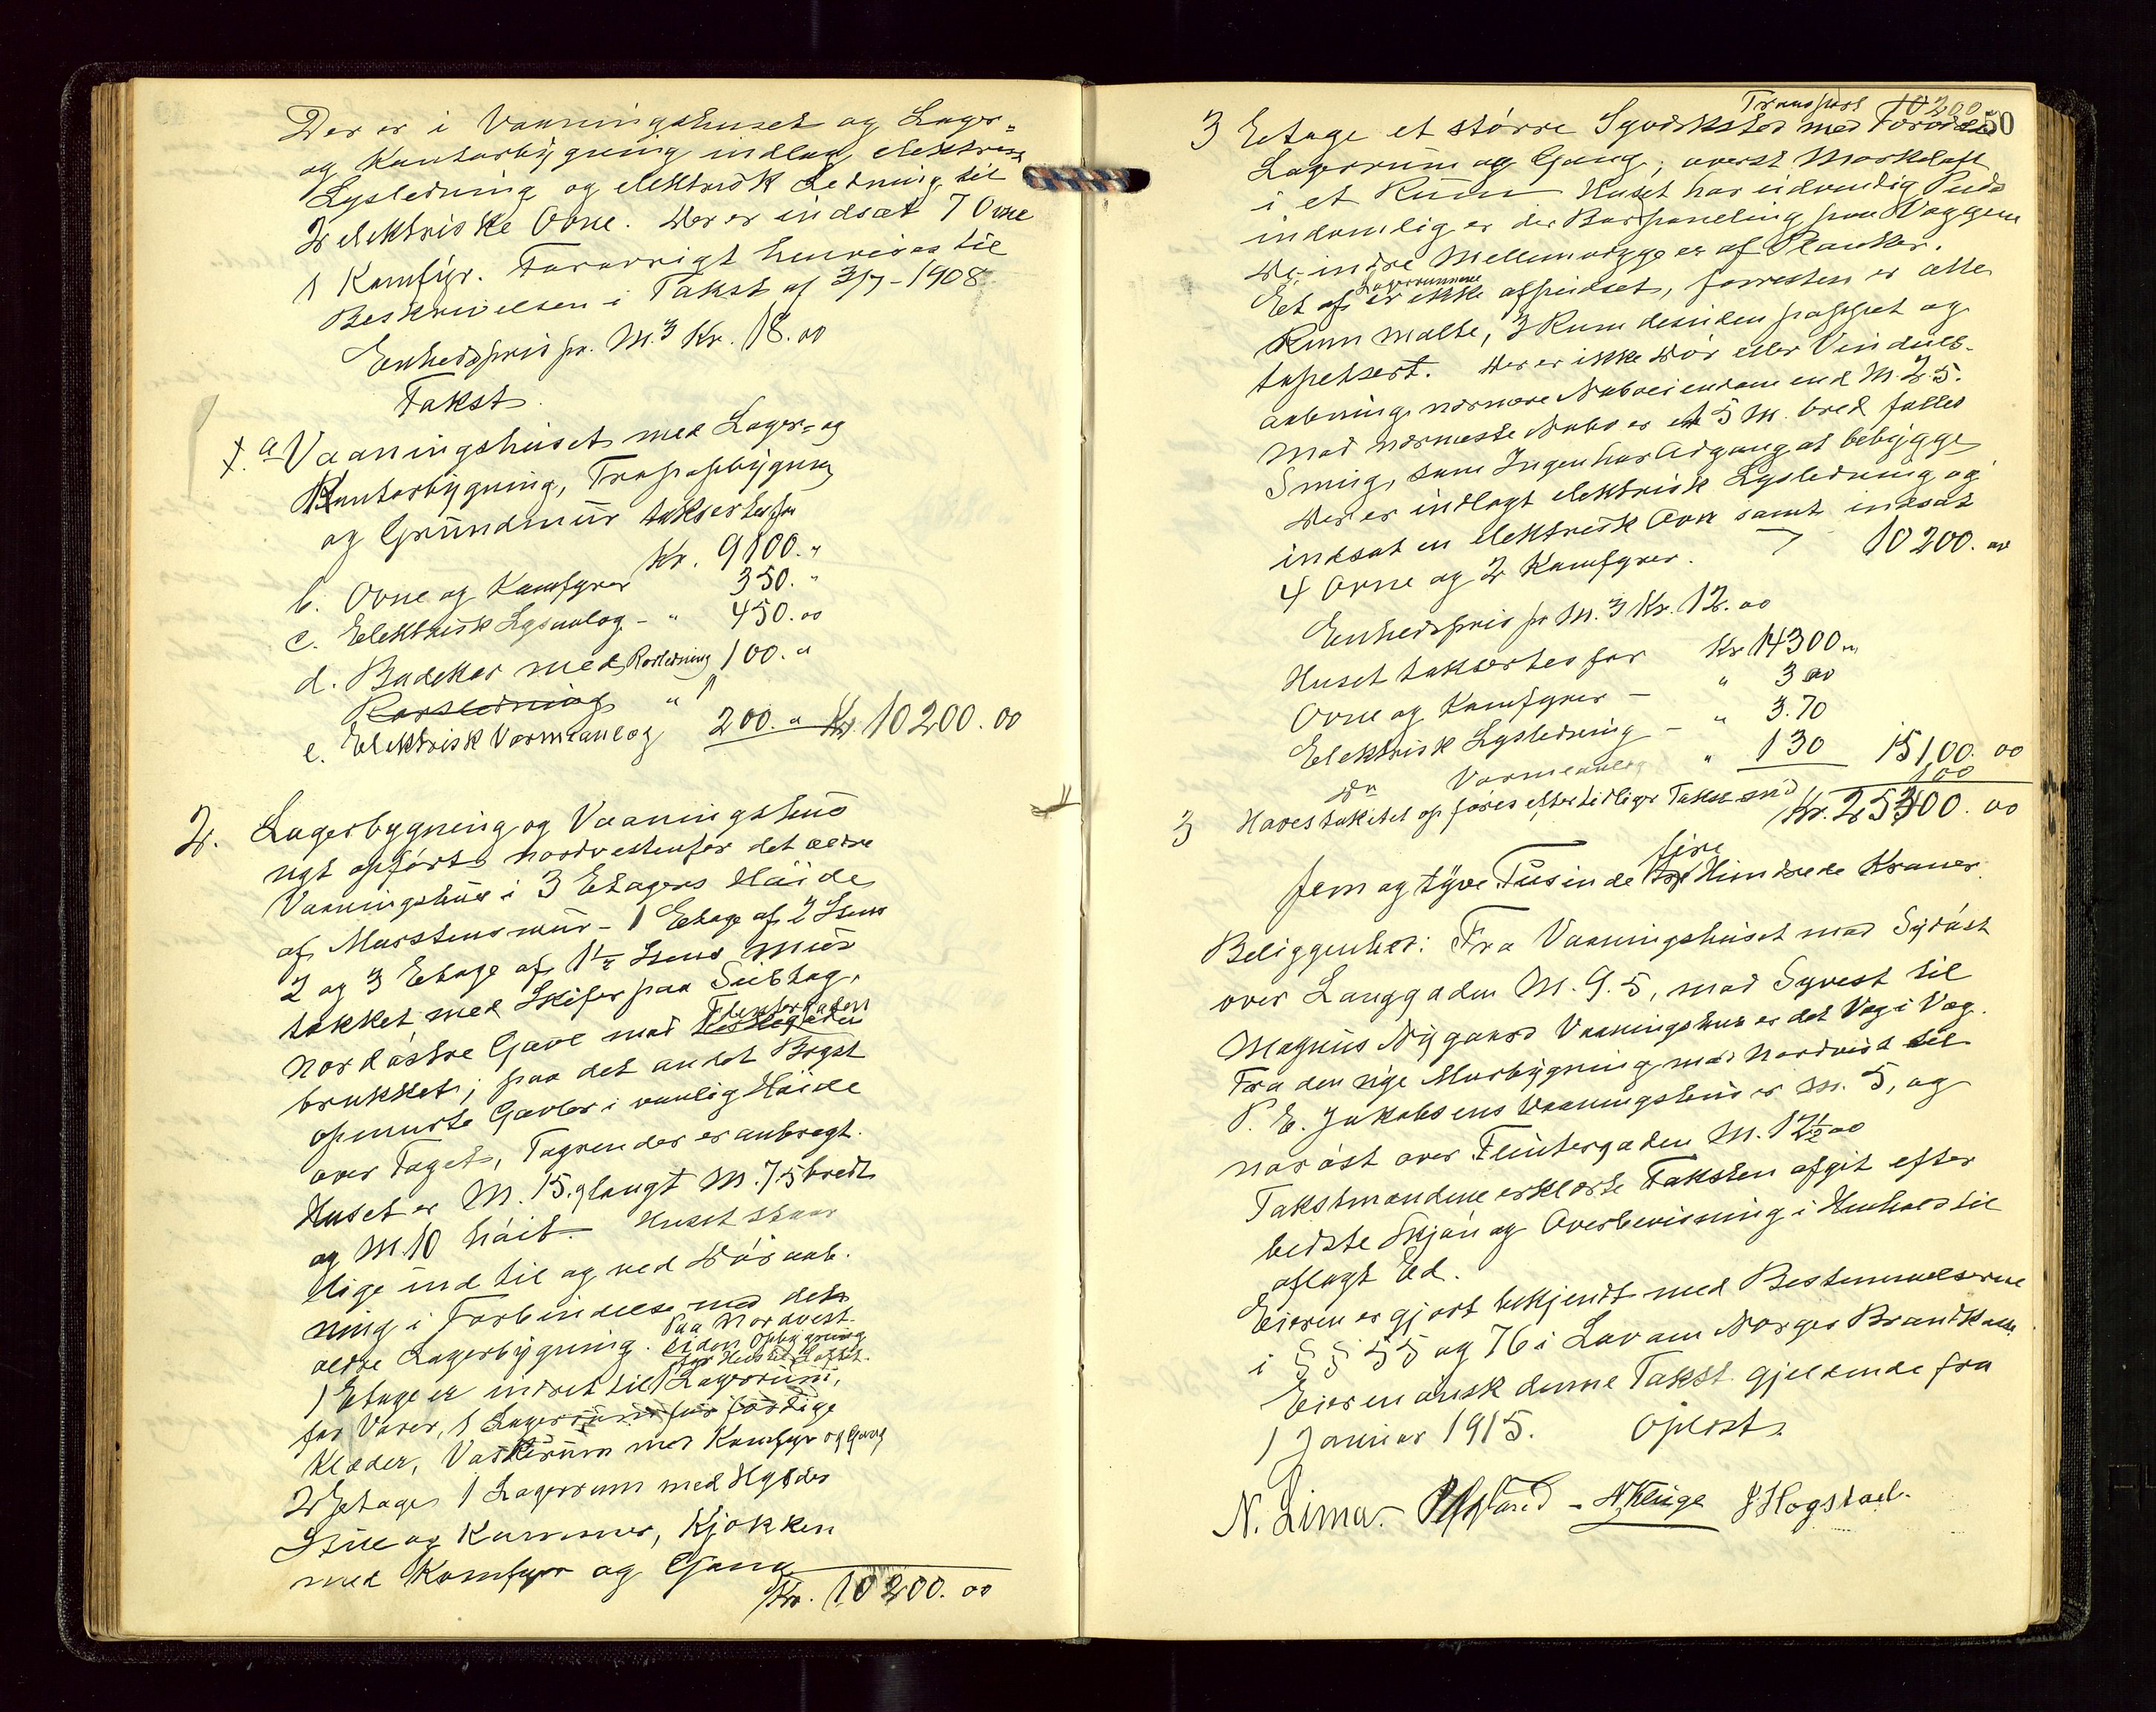 Der er i Vaaningshuset og Lager-
og Kontorbygning indlag elektrisk
Lysledning og elektrisk Ledning til
2 elektriske Ovne. Der er indsat 7 Ovne
1 Komfyr. Forøvrigt henvises til
Beskrivelsen i Takst af 3/7-1908
Enhedspris pr. M.3 Kr. 18.00
Takst
1. a Vaaningshuset med Lager- og
Kontorbygning, Trapopbygning
og Grundmur takseres for
Kr. 9100. "
b. Ovne og Komfyrer 350. "
c. Elektrisk Lysanlæg - " 450.00
d. Badekar med Rørledning 100. "
Rørledning "
e. Elektrisk Varmeanlæg 200. " Kr. 10200.00
2. Lagerbygning og Vaaningshus
nyt opført nordvestenfor det ældre
Vaaningshus i 3 Etagers Høide
af Murstensmur - 1 Etage af 2 Stens
2 og 3 Etage af 1½ Stens Mur
tækket med Skifer paa Subtag,
Flintergaden
nordøstre Gavl mod
brukket; paa det andet Bryst
opmurte Gavler i vanlig Høide
over Taget, Tagrender er anbragt.
Huset er M. 15.9 langt M. 7.5 bredt
og M.10 høit. Huset staar
lige ind til og ved Døraab-
ning i Forbindelse med det
ældre Lagerbygning. Paa Nordvest-
siden Opbygning
for Heis til Loftet.
1 Etage er indret til 1 Lagerrum,
for Varer, 1 Lagerrum for færdige
Klæder, Vaskerum med Komfyr og Gang
2 Etage 1 Lagerrum med Hylder
Stue og Kammer, Kjøkken
med Komfyr og Gang
Kr. 10200.00
Transport 10200 50
3 Etage et større Syværksted med
Lagerrum og Gang; øverst Mørkeloft
i et Rum Huset har udvendig Puds
indvendig er der Bordpaneling paa Væggene
De indre Mellemvægge er af Planker.
Lagerrummene
Et af er ikke afpudset, forresten er alle
Rum malte, 3 Rum desuden pappet og
tapetsert. Der er ikke Dør eller Vindues-
aabning nærmere Naboeiendom end M. 2.5.
Mod nærmeste Nabo er et 5 M. bred fælles
Smug, som Ingen har Adgang at bebygge
Der er indlagt elektrisk Lysledning og
indsat en elektrisk Ovn samt indsat
4 Ovne og 2 Komfyrer. 10200. 00
Enhedspris pr M.3 Kr. 12.00
Huset takseres for Kr 14300 "
Ovne og Komfyrer - " 300
Elektrisk Lysledning - " 370
Do Varmeanlæg " 130 15100. 00
3 Havestakitet opføres efter tidligere Takst med 100
Kr. 25400. 00
fire
fem og tyve Tusinde Hundrede Kroner.
Beliggenhed: Fra Vaaningshuset mod Sydøst
over Langgaden M. 9.5, mod Sydvest til
Magnus Nygaard Vaaningshus er det Væg i Væg.
Fra den nye Murbygning mod Nordvest til
P. E. Jakobsens Vaaningshus er M. 5, og
nordøst over Flintergaden M. 12½ 00
Takstmændene erklærte Taksten afgit efter
bedste Skjøn og Overbevisning i Henhold til
aflagt Ed.
Eieren er gjort bekjendt med Bestemmelserne
i §§ 55 og 76 i Lov om Norges Brandkasse
Eieren ønsk denne Takst gjeldende fra
1 Januar 1915. Oplæst.
N. Lima. - - N Kluge J Hogstad.